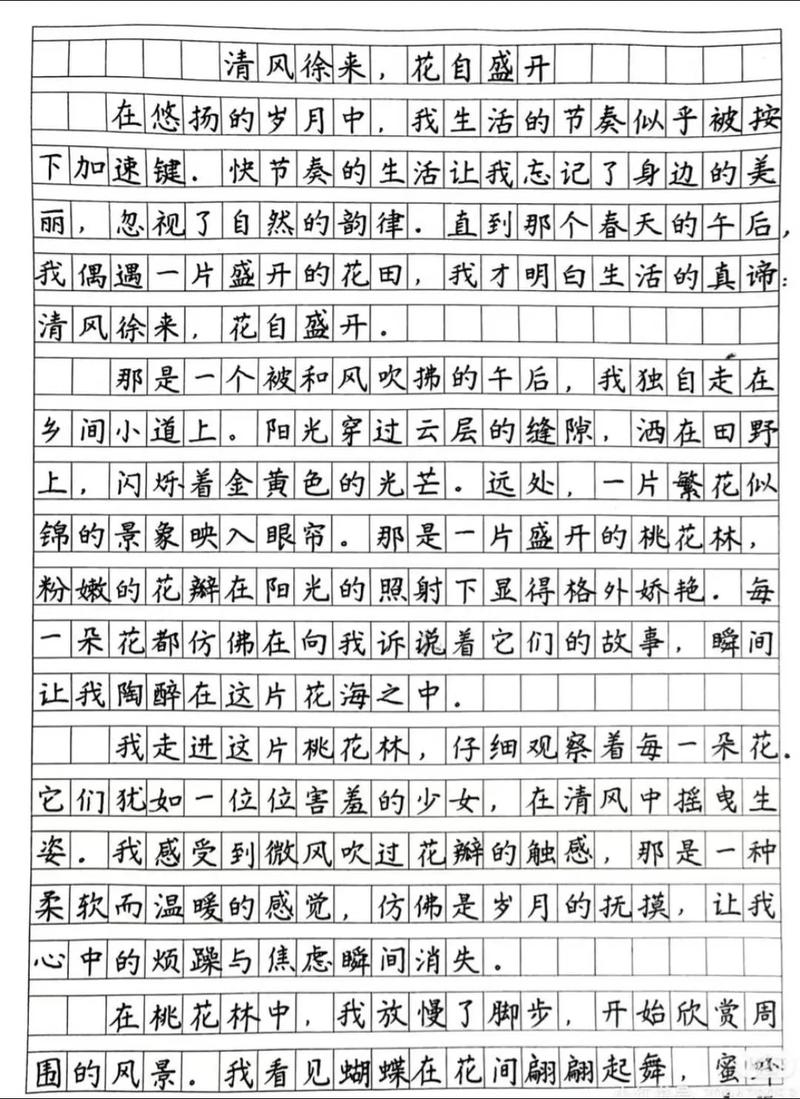 清风徐来，花自盛开
在悠扬的岁月中，我生活的节奏似乎被按
下加速键．快节奏的生活让我忘记了身边的美
丽，忽视了自然的韵律．直到那个春天的午后，
我偶遇一片盛开的花田，我才明白生活的真谛：
清风徐来，花自盛开．
那是一个被和风吹拂的午后，我独自走在
乡间小道上。阳光穿过云层的缝隙，洒在田野
上，闪烁着金黄色的光芒。远处，一片繁花似
锦的景象映入眼帘。那是一片盛开的桃花林，
粉嫩的花瓣在阳光的照射下显得格外娇艳．每
一朵花都仿佛在向我诉说着它们的故事，瞬间
让我陶醉在这片花海之中．
我走进这片桃花林，仔细观察着每一朵花．
它们犹如一位位害羞的少女，在清风中摇曳生
姿．我感受到微风吹过花瓣的触感，那是一种
柔软而温暖的感觉，仿佛是岁月的抚摸，让我
心中的烦躁与焦虑瞬间消失。
在桃花林中，我放慢了脚步，开始欣赏周
围的风景。我看见蝴蝶在花间翩翩起舞，蜜